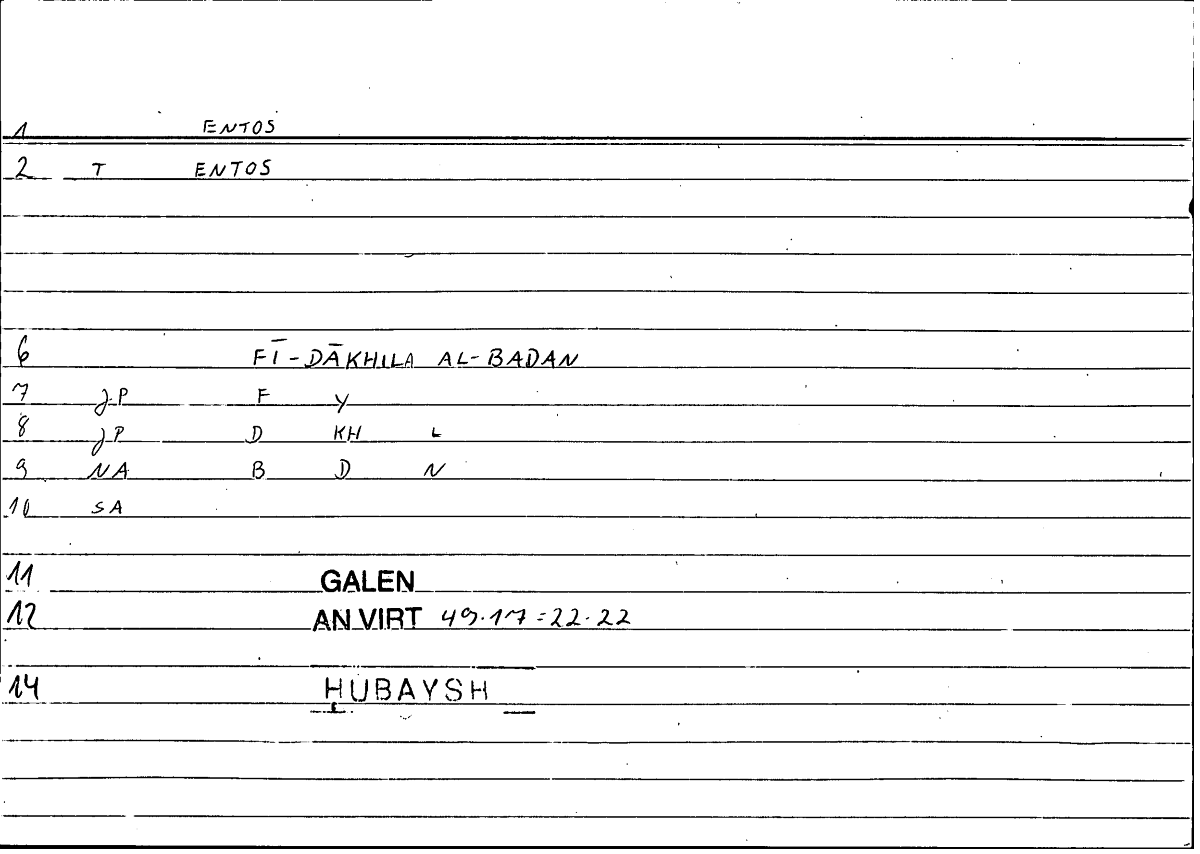 1 ENTOS
2 T ENTOS
6 FĪ-DĀKHILA AL-BADAN
7 JP F Y
8 JP D KH L
9 NA B D N
10 SA
11 GALEN
12 AN VIRT 49.17=22.22
14 ḤUBAYSH